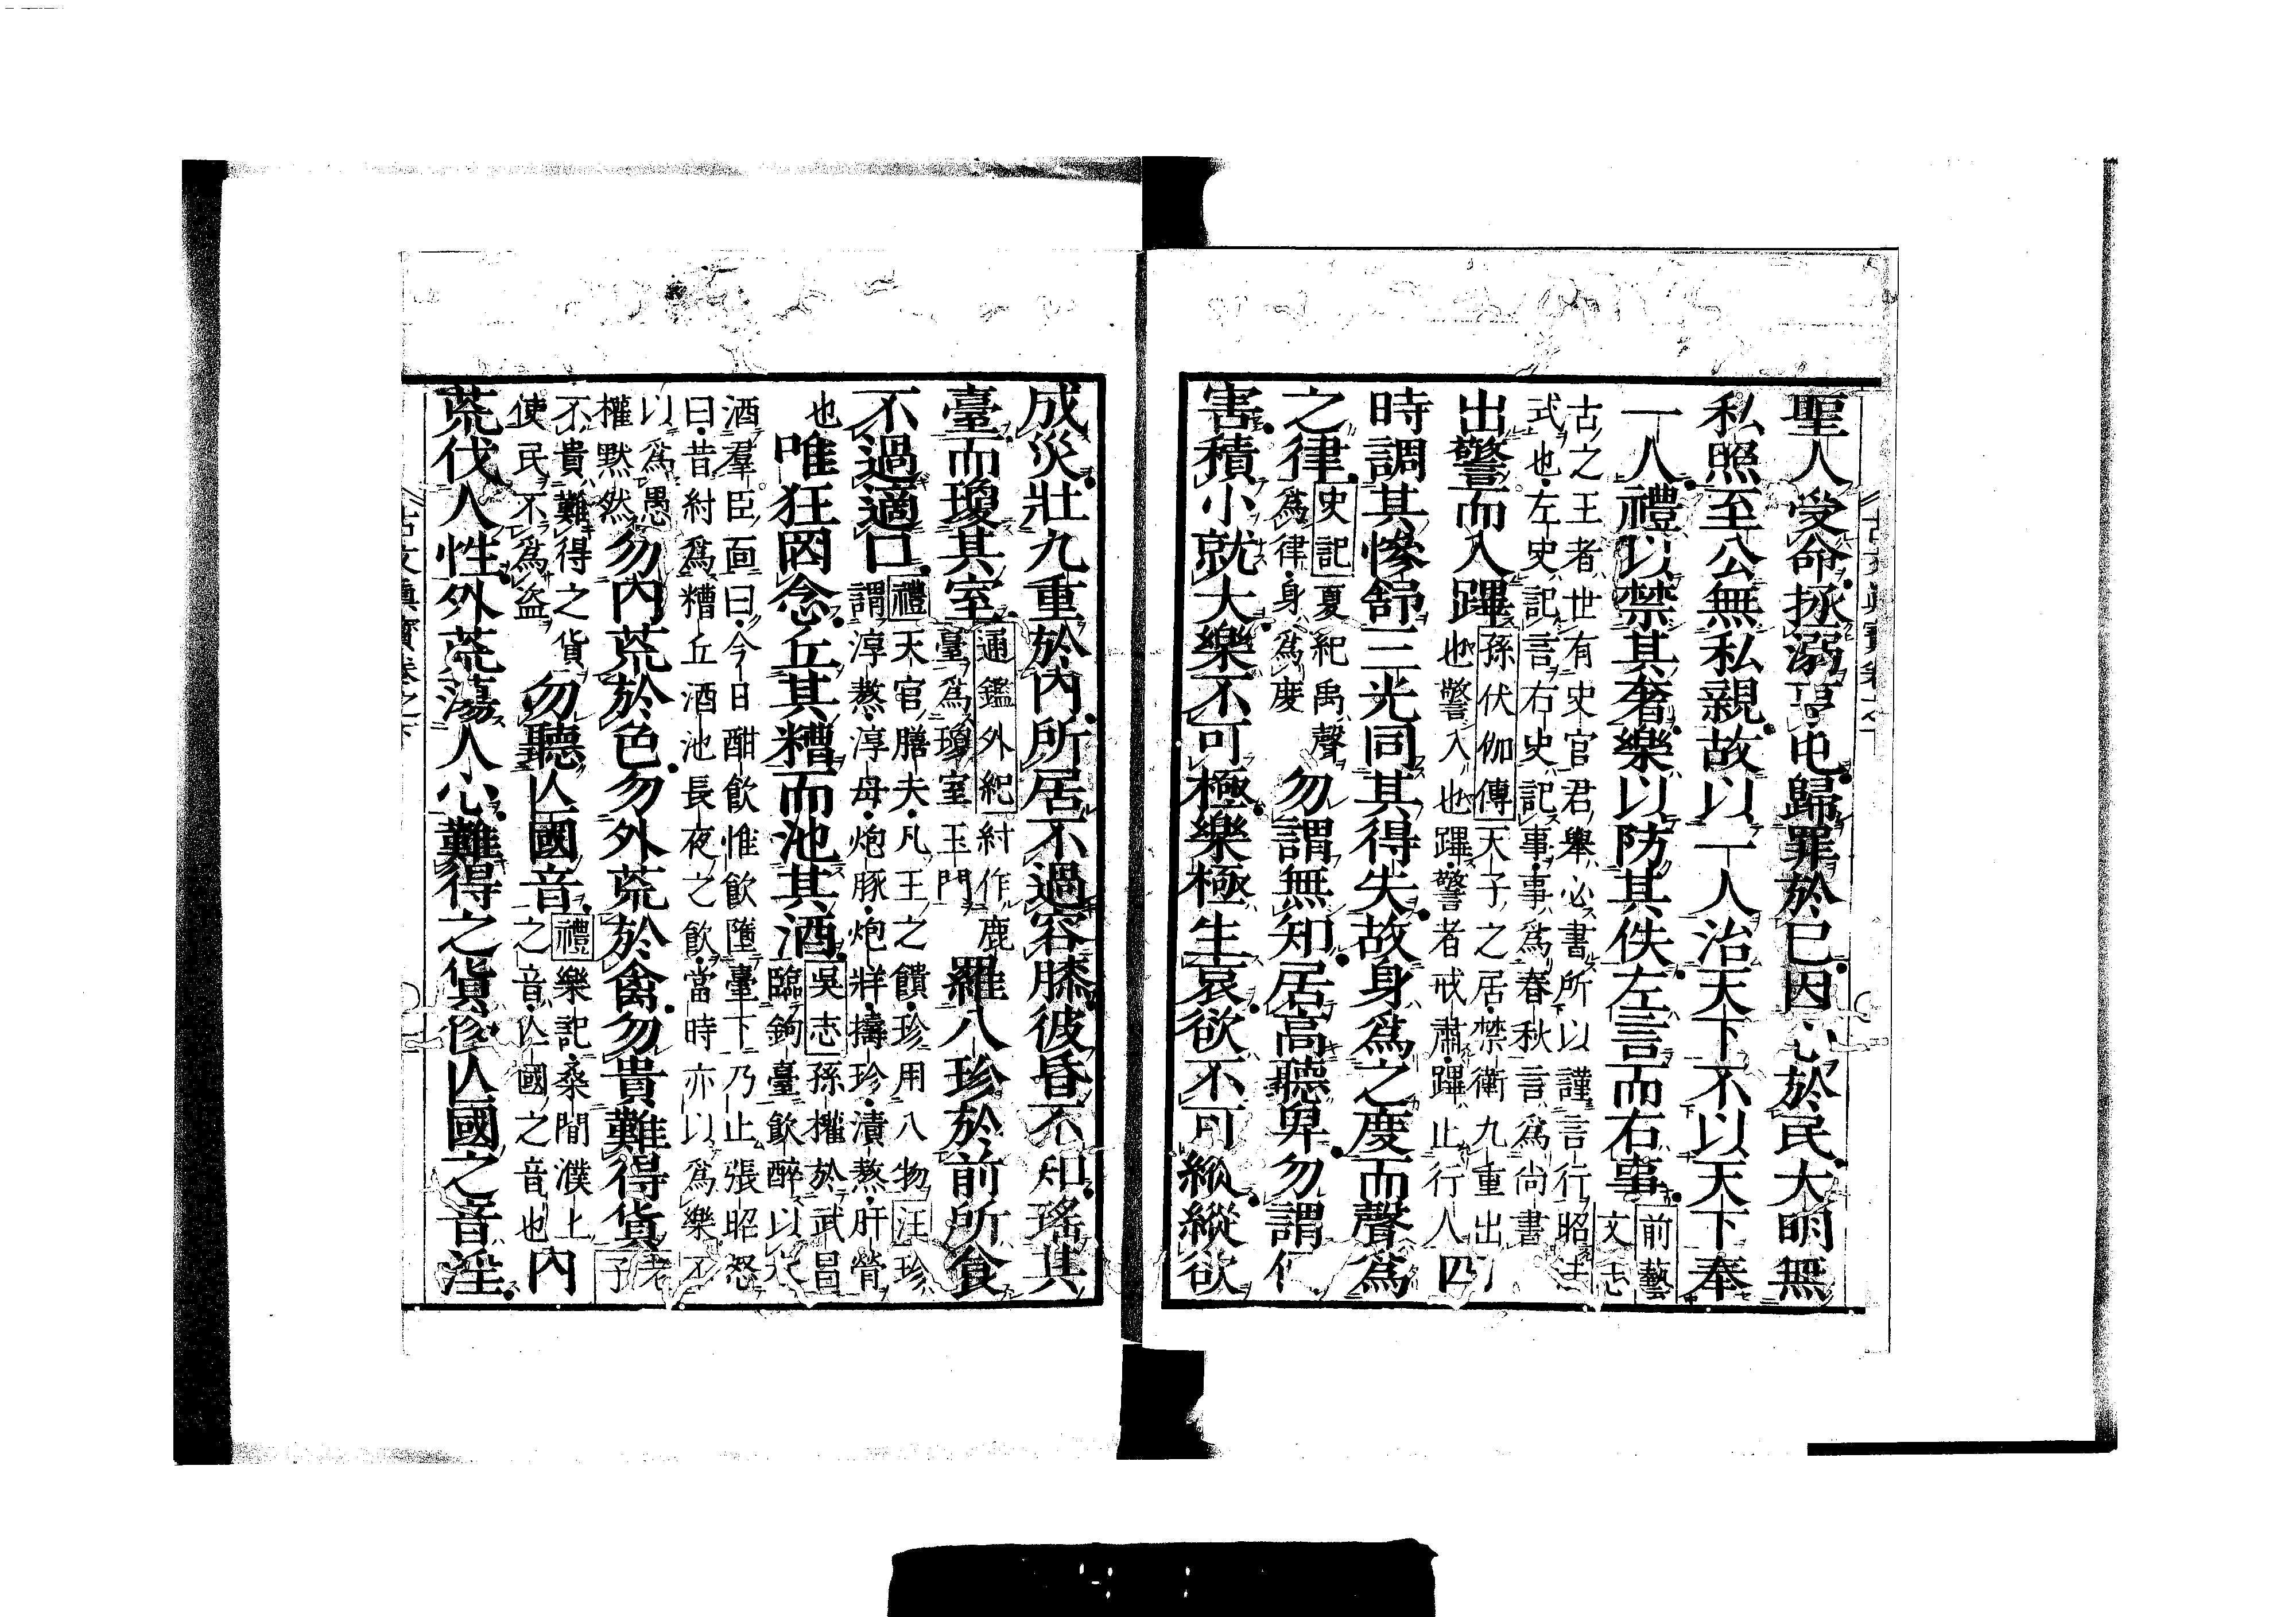 聖人受命拯溺亨屯歸罪於已因心於民大明無
私照至公無私親故以一人治天下不以天下奉
一人禮以禁其奢樂以防其佚左言而右事
前藝
文志
古之王者世有史官君舉必書所以謹言行昭法
式也左史記言右史記事事爲春秋言爲尚書
出警而入蹕
孫伏伽傳天子之居禁衛九重出
也警入也蹕警者戒肅蹕止行人
四
時調其慘舒三光同其得失故身爲之度而聲爲
之律
史記夏紀禹聲
爲律身爲度
勿謂無知居高聽卑勿謂何
害積小就大樂不可極樂極生哀欲不可縱縱欲
成災壯九重於內所居不過容膝彼昏不知瑤其
臺而瓊其室
通鑑外紀紂作鹿
臺爲瓊室玉門
羅八珍於前所食
不過適口
禮天官膳夫凡王之饋珍用八物注珍
謂淳熬淳母炮豚炮牂擣珍漬熬肝膋
也
唯狂罔念丘其糟而池其酒
吳志孫權於武昌
臨釣臺飲醉以水
酒羣臣面曰今日酣飲惟飲墮臺下乃止張昭怒
曰昔紂爲糟丘酒池長夜之飲當時亦以爲樂不
以爲愚
權默然
勿內荒於色勿外荒於禽勿貴難得貨
老
子
不貴難得之貨
使民不爲盜
勿聽亾國音
禮樂記桑間濮上
之音亾國之音也
內
荒伐人性外荒蕩人心難得之貨侈亾國之音淫
古文眞寶卷之下